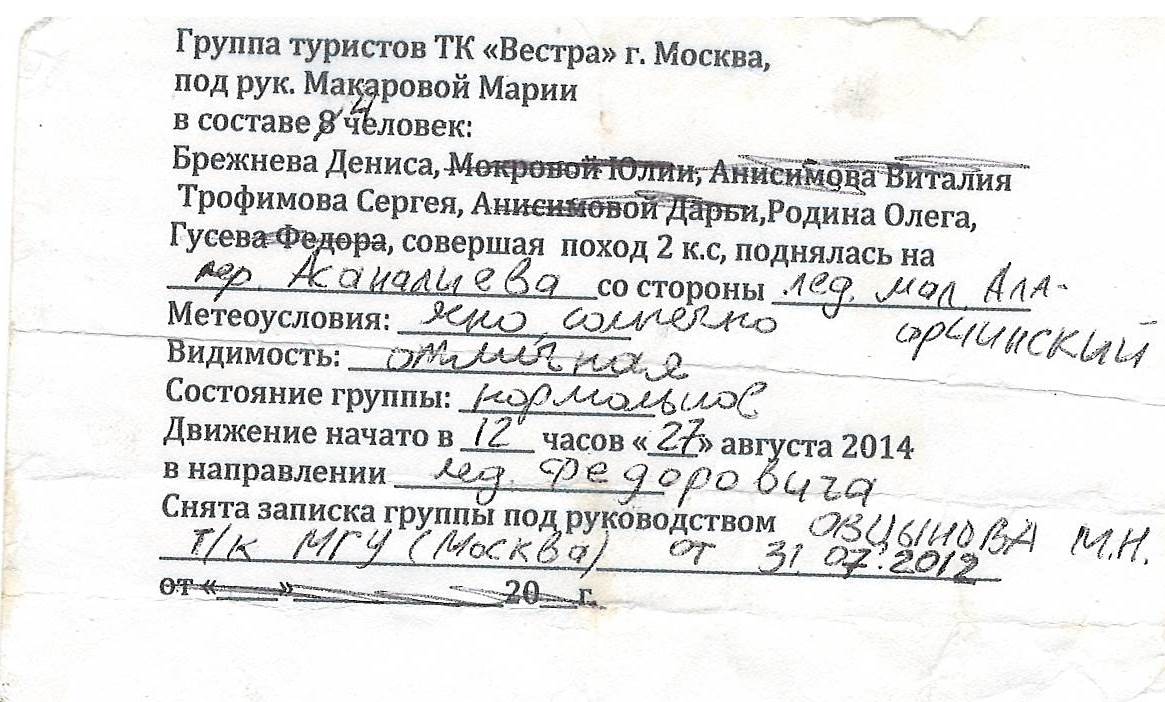 Группа туристов ТК «Вестра» г. Москва,
под рук. Макаровой Марии
в составе 8 4 человек:
Брежнева Дениса, Мокровой Юлии, Анисимова Виталия
Трофимова Сергея, Анисимовой Дарьи,Родина Олега,
Гусева Федора, совершая поход 2 к.с, поднялась на
пер. Асаналиева со стороны лед. мал. Ала-
Метеоусловия: ясно, солнечно арчинский
Видимость: отличная
Состояние группы: нормальное
Движение начато в 12 часов «27» августа 2014
в направлении лед. Федоровича
Снята записка группы под руководством Овцынова М.Н.
Т/к МГУ (Москва) от 31.07.2012
от «____»____________20__г.